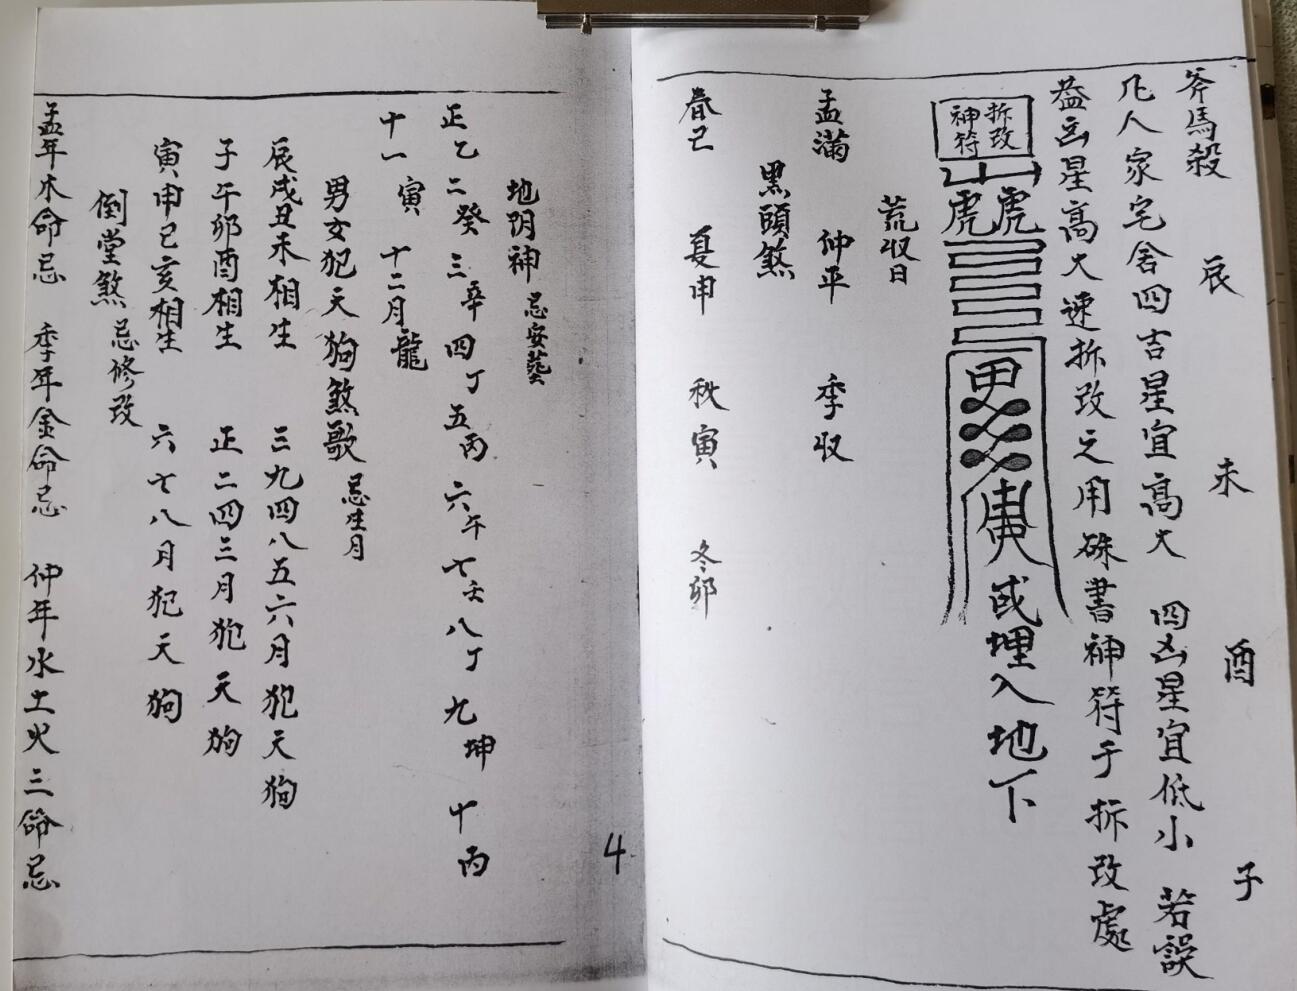 斧馬殺　辰　未　酉　子
凡人家宅舍四吉星宜高大　四凶星宜低小　若誤
蓋凶星高大速拆改之用硃書神符于拆改處
拆改
神符
山
虎虎
男
庚
或埋入地下
荒収日
孟滿　仲平　季収
黑頭煞
春巳　夏申　秋寅　冬卯
4
地阴神 忌安葬
正乙二癸三辛四丁五丙六午七壬八丁九坤十丙
十一寅　十二月龍
男女犯天狗煞歌 忌生月
辰戌丑未相生　三九四八五六月犯天狗
子午卯酉相生　正二四三月犯天狗
寅申巳亥相生　六七八月犯天狗
倒堂煞 忌修改
孟年木命忌　季年金命忌　仲年水土火三命忌